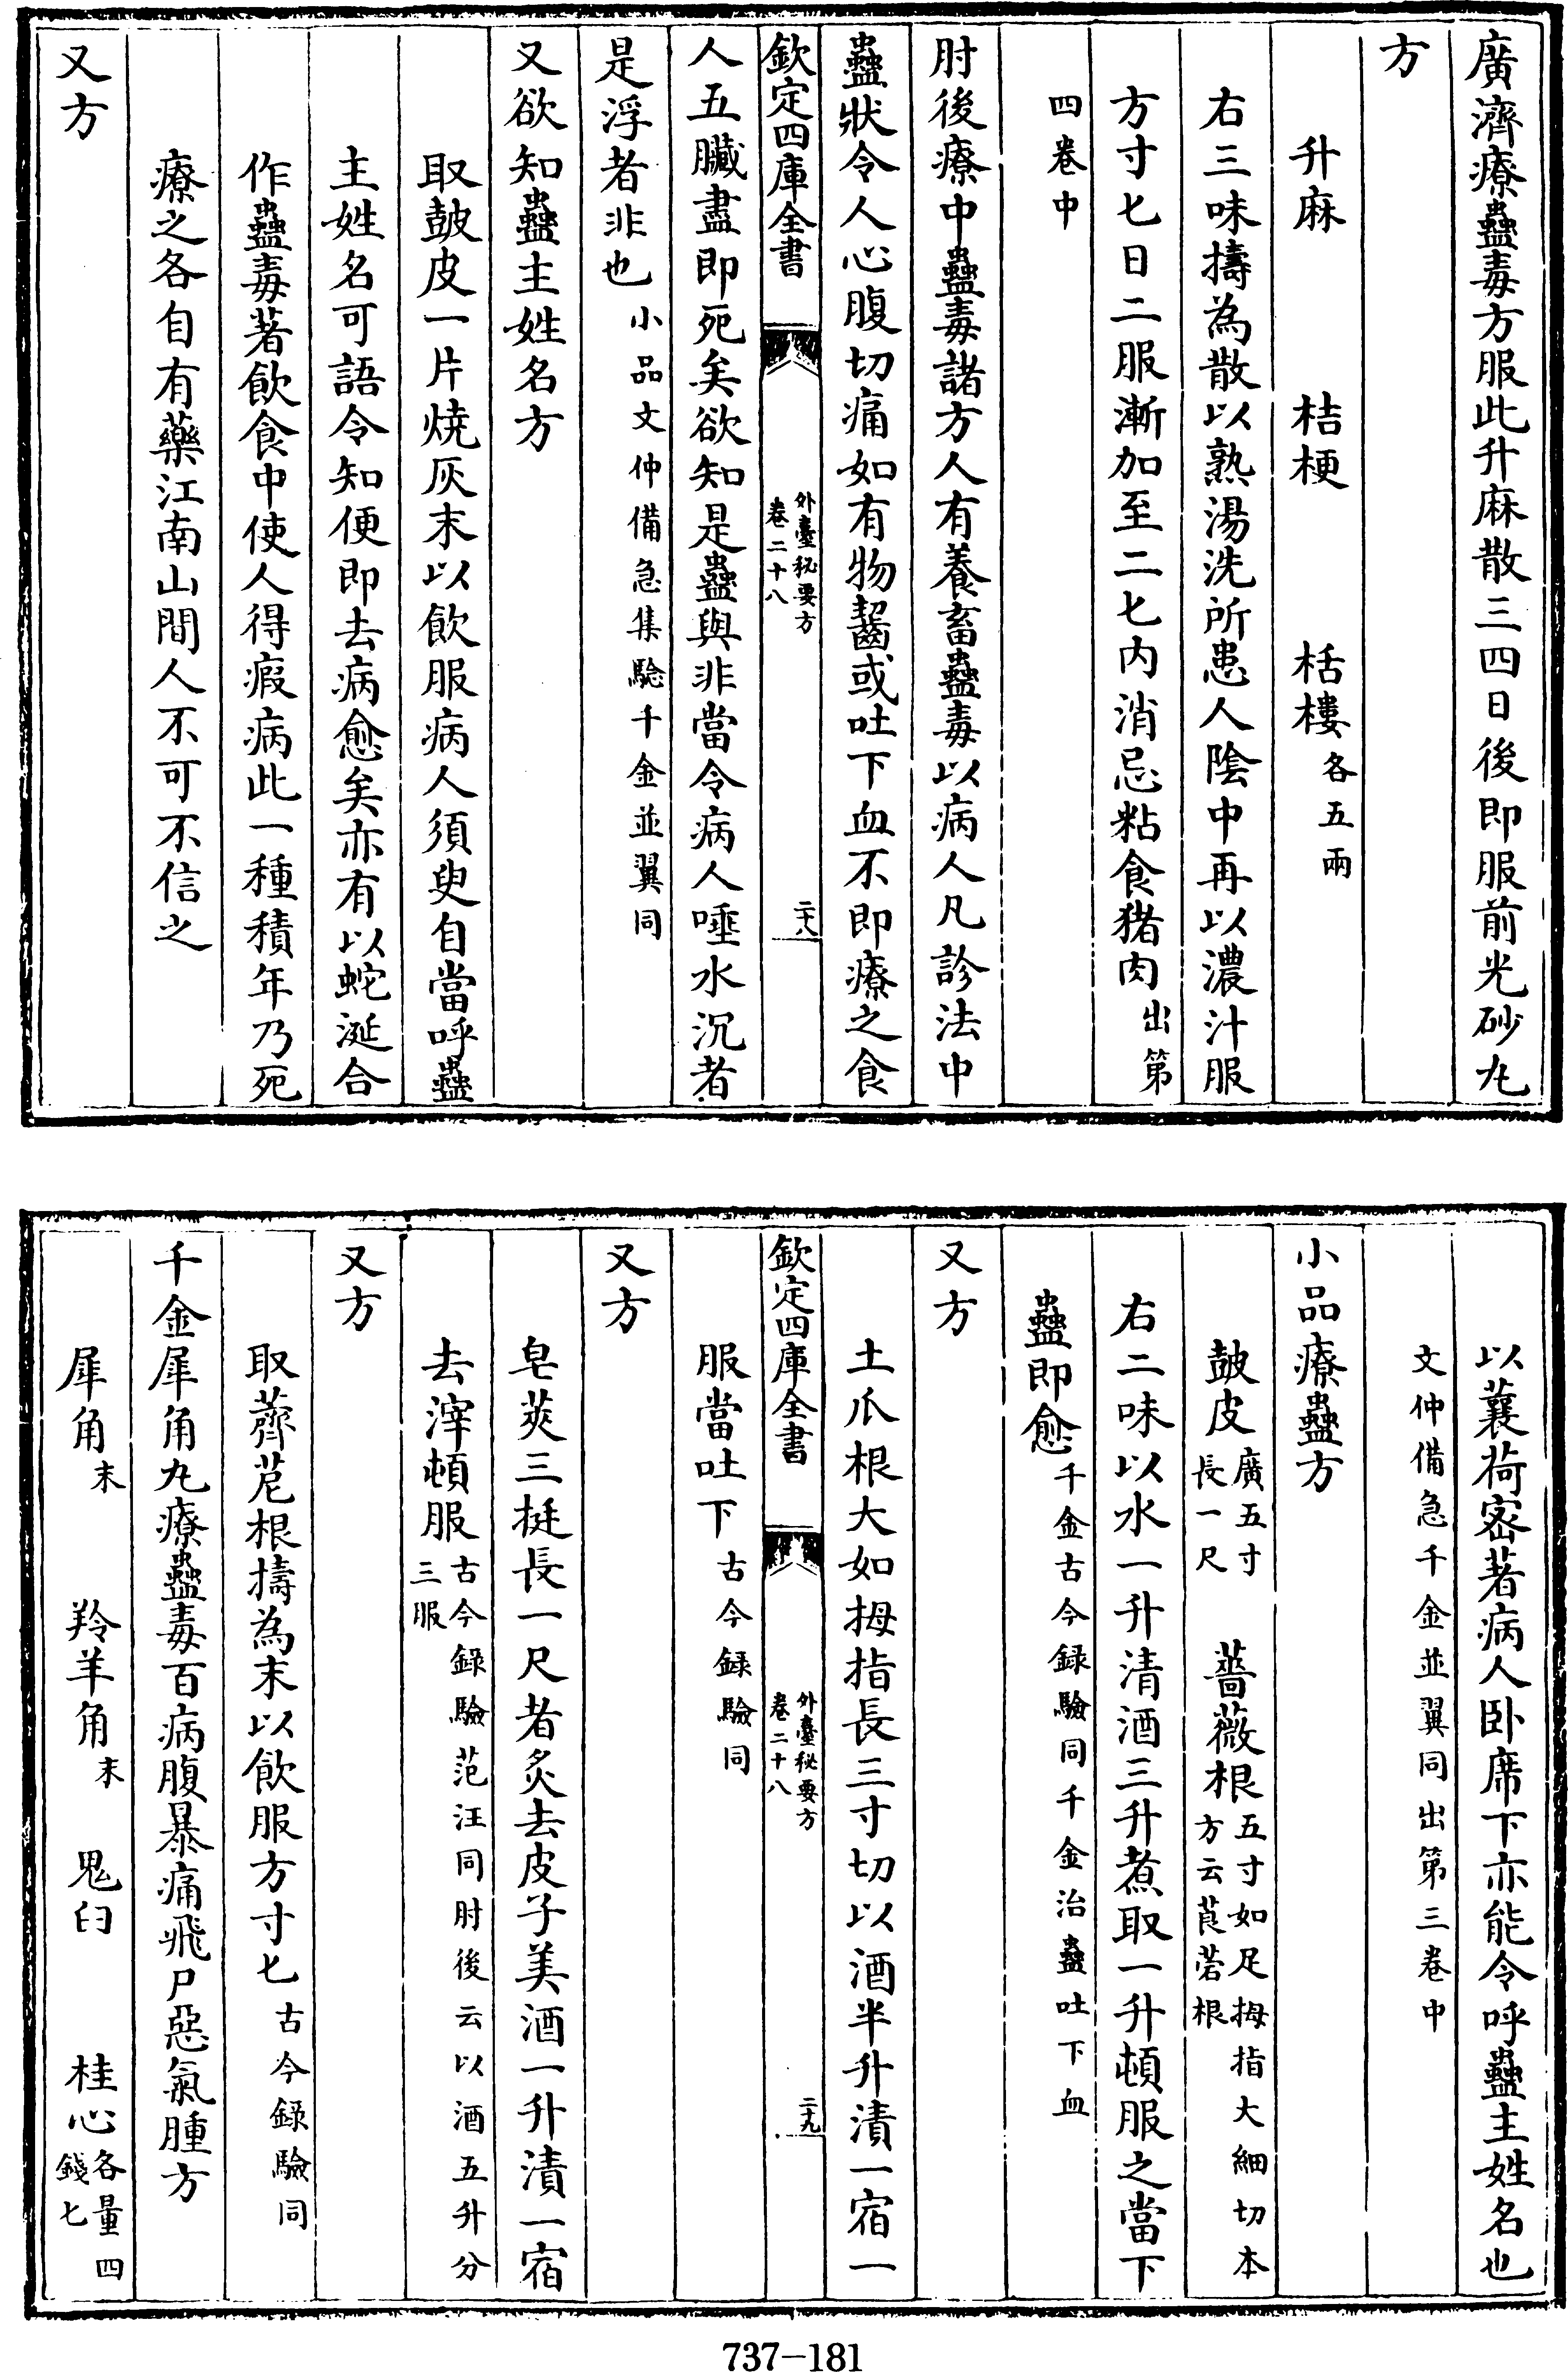 廣濟療蠱毒方服此升麻散三四日後即服前光砂丸
方
升麻 桔梗 栝樓各五兩
右三味擣為散以熟湯洗所患人陰中再以濃汁服
方寸七日二服漸加至二七內消忌粘食猪肉出第
四卷中
肘後療中蠱毒諸方人有養畜蠱毒以病人凡診法中
蠱狀令人心腹切痛如有物齧或吐下血不即療之食
欽定四庫全書
外臺秘要方
卷二十八
二十八
人五臟盡即死矣欲知是蠱與非當令病人唾水沉者
是浮者非也小品文仲備急集驗千金並翼同
又欲知蠱主姓名方
取皷皮一片燒灰末以飲服病人須臾自當呼蠱
主姓名可語令知便即去病愈矣亦有以蛇涎合
作蠱毒著飲食中使人得瘕病此一種積年乃死
療之各自有藥江南山間人不可不信之
又方
以蘘荷密著病人卧席下亦能令呼蠱主姓名也
文仲備急千金並翼同出第三卷中
小品療蠱方
皷皮廣五寸長一尺 薔薇根五寸如足拇指大細切本方云莨菪根
右二味以水一升清酒三升煮取一升頓服之當下
蠱即愈千金古今録驗同千金治蠱吐下血
又方
土爪根大如拇指長三寸切以酒半升漬一宿一
欽定四庫全書
外臺秘要方
卷二十八
二十九
服當吐下古今録驗同
又方
皂莢三挺長一尺者炙去皮子美酒一升漬一宿
去滓頓服古今録驗范汪同肘後云以酒五升分三服
又方
取薺苨根擣為末以飲服方寸七古今録驗同
千金犀角丸療蠱毒百病腹暴痛飛尸惡氣腫方
犀角末 羚羊角末 鬼臼 桂心各量四錢七
737-181